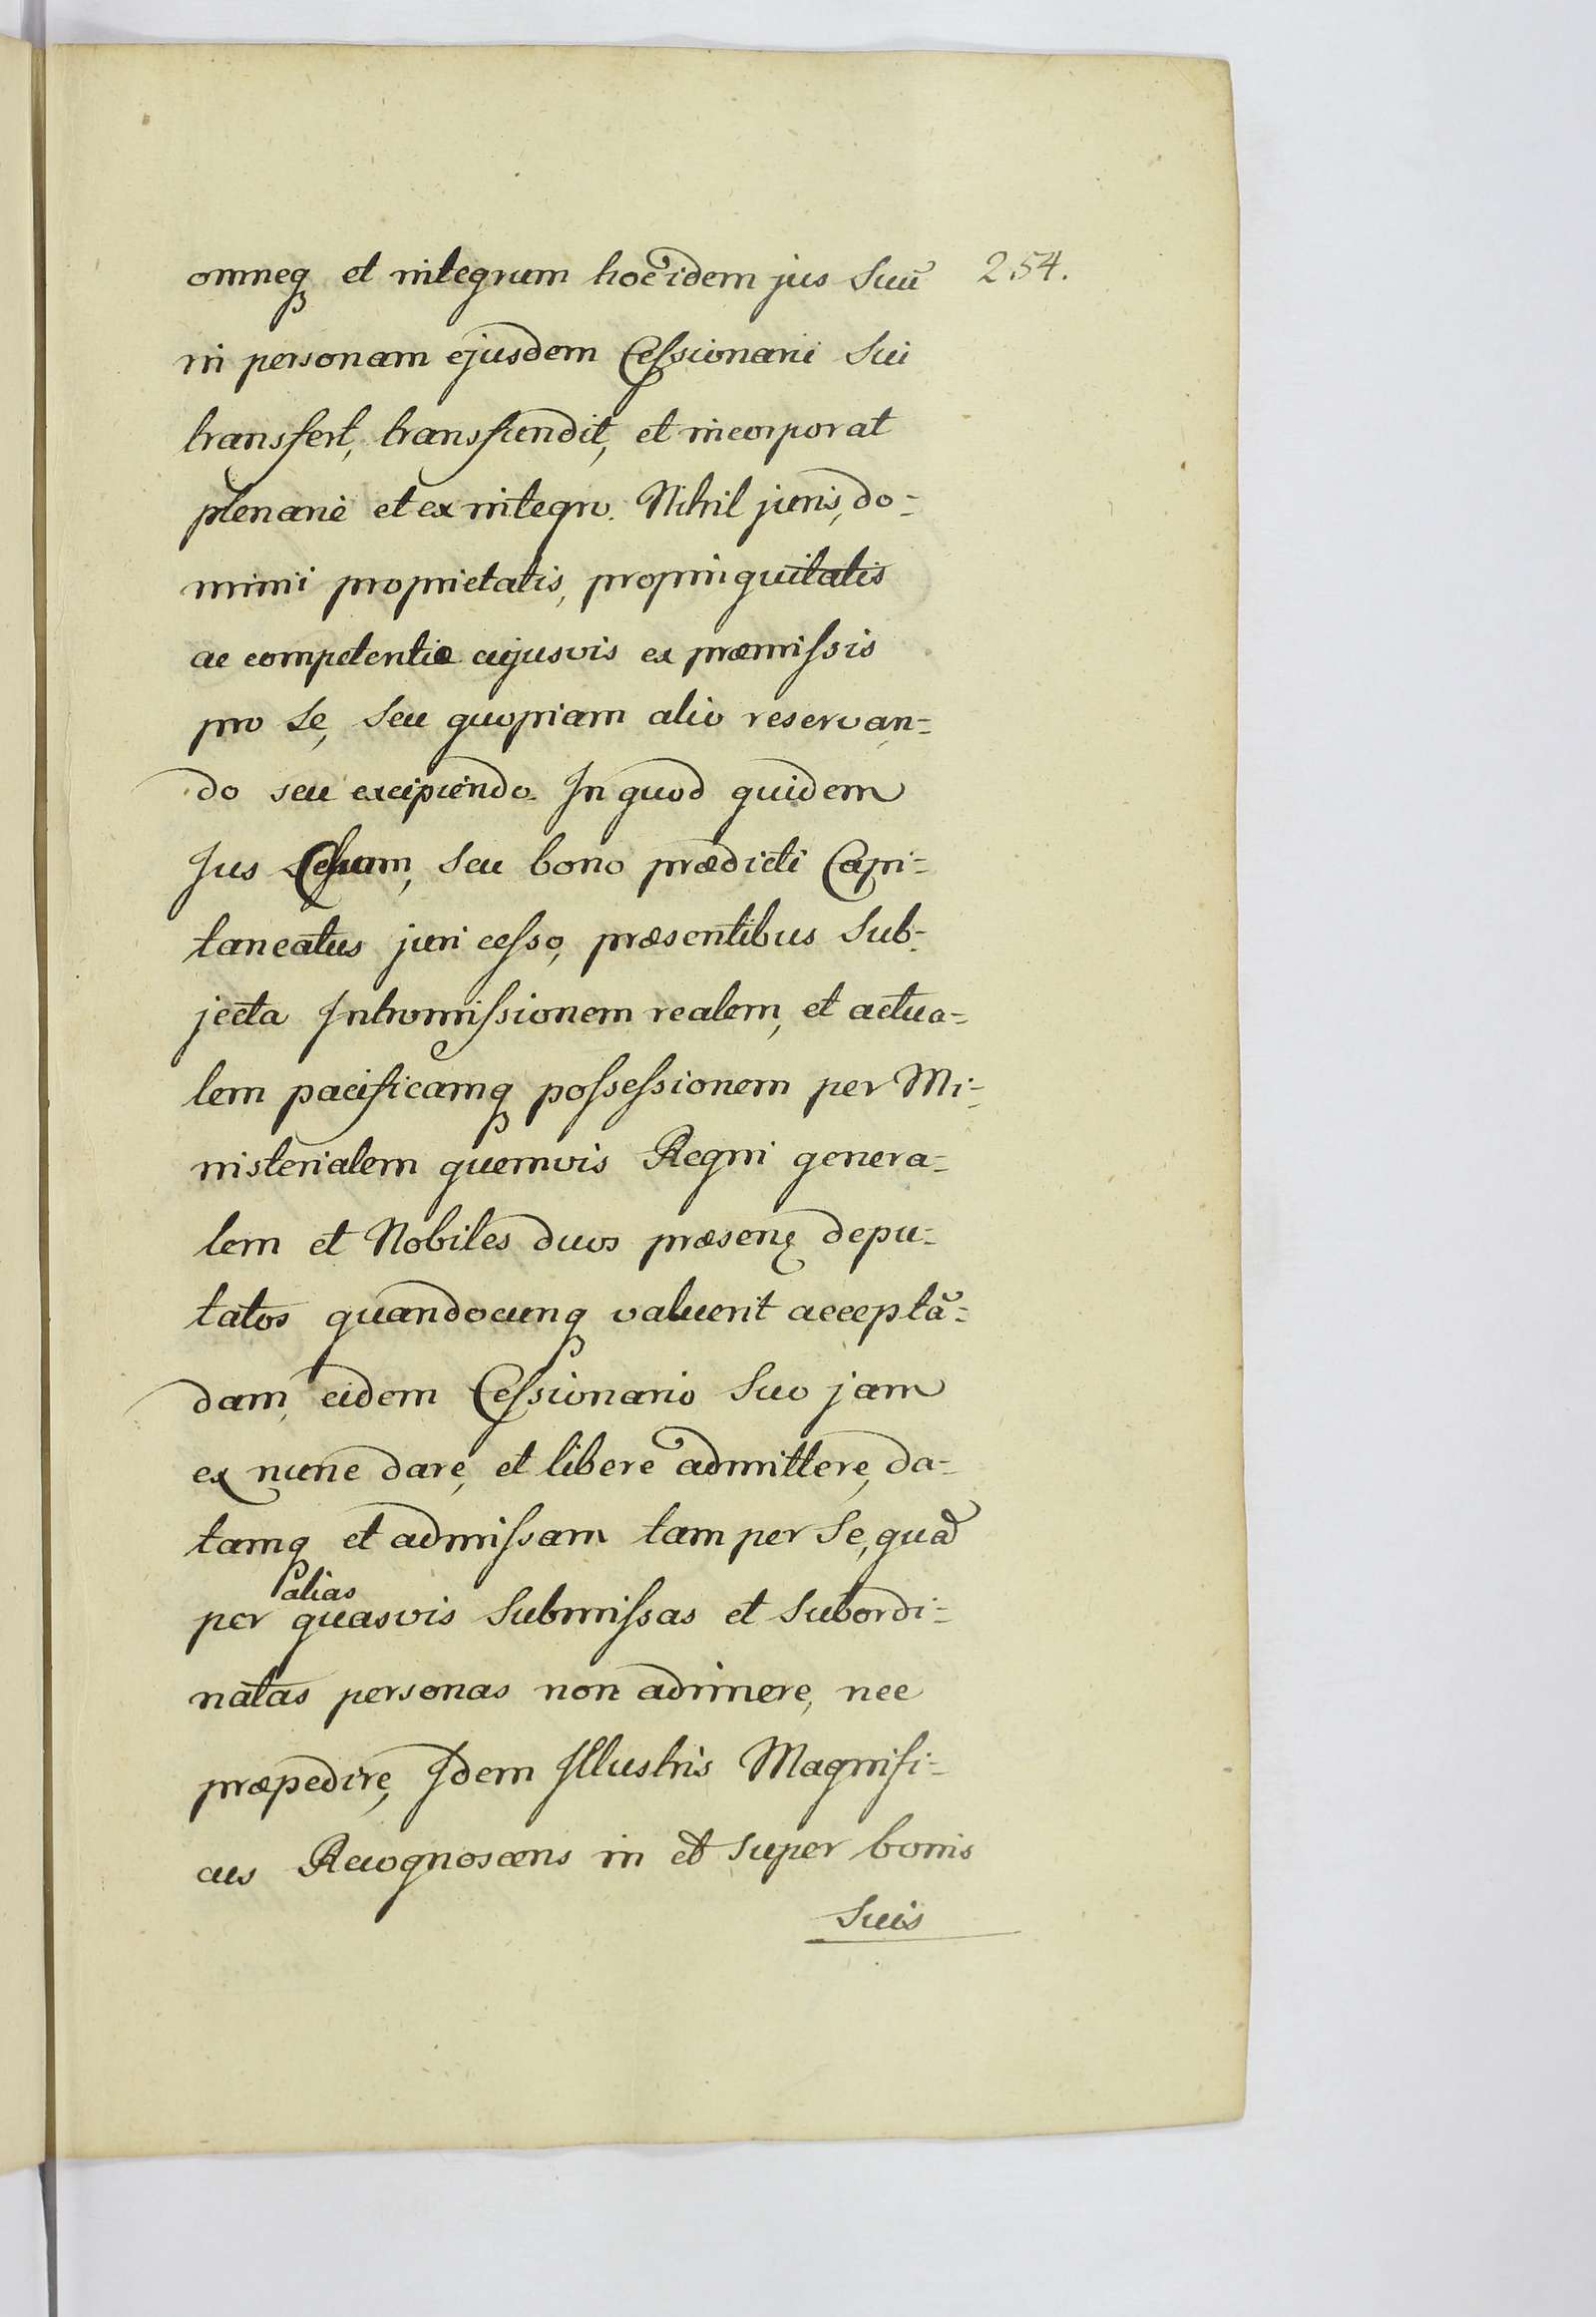 omneq et integrum hoc idem jus Suū 254.
in personam ejusdem Cessionarii Sui
transfert, transfundit, et incorporat
plenarie et ex integro. Nihil juris, do=
minii proprietatis, propinquitatis
ac competentiæ cujusvis ex præmissis
pro Se, Seu quopiam alio reservan=
do seu excipiendo. In quod quidem
Jus Cessum, Seu bono prædicti Capi=
taneatus juri cesso, præsentibus Sub=
jecta Intromissionem realem, et actua=
lem pacificamq possessionem per Mi=
nisterialem quemvis Regni genera=
lem et Nobiles duos præsenę depu=
tatos quandocunq valuerit acceptā=
dam, eidem Cessionario Suo jam
ex nunc dare, et libere admittere, da=
tamq et admissam tam per Se, quā
alias
per quasvis Submissas et Subordi=
natas personas non adimere, nec
præpedire, Idem Illustris Magnifi=
cus Recognoscens in et super bonis
Suis